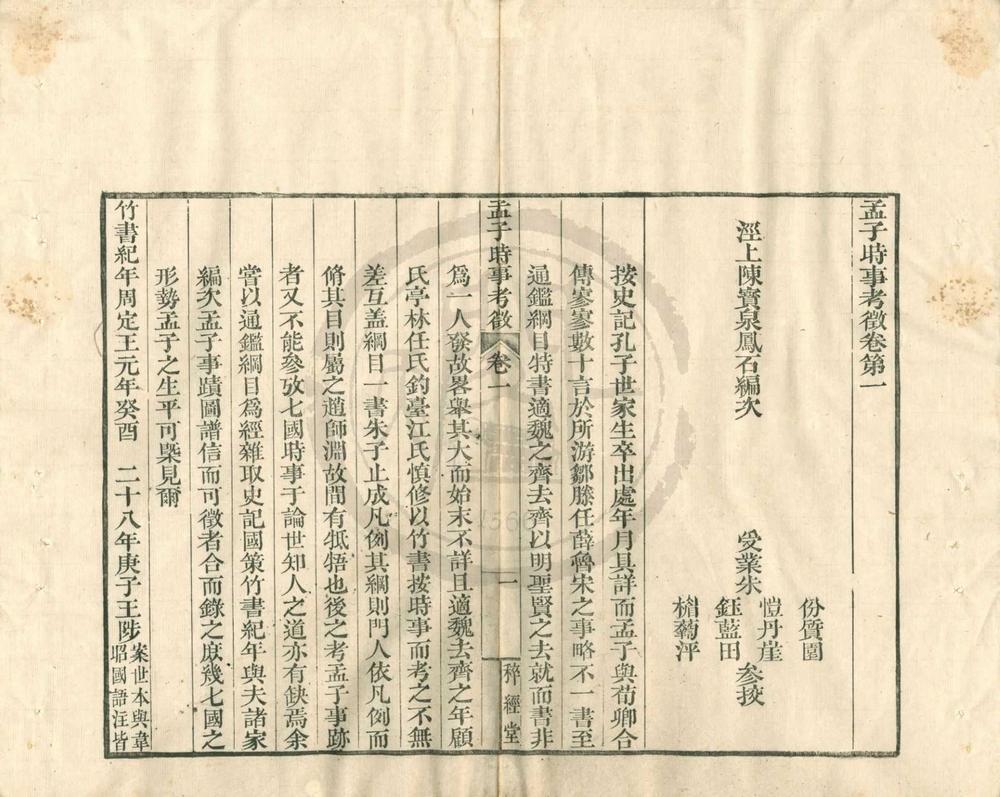 孟子時事考徵卷第一
涇上陳寶泉鳳石編次
份質圃
受業朱 愷丹崖 參挍
鈺藍田
櫹菊泙
按史記孔子世家生卒出處年月具詳而孟子與荀卿合
傳寥寥數十言於所游鄒滕任薛魯宋之事略不一書至
通鑑綱目特書適魏之齊去齊以明聖賢之去就而書非
孟子時事考徵 卷一 一 稡經堂
爲一人發故畧舉其大而始末不詳且適魏去齊之年顧
氏亭林任氏釣臺江氏慎修以竹書按時事而考之不無
差互蓋綱目一書朱子止成凡例其綱則門人依凡例而
脩其目則屬之趙師淵故間有牴牾也後之考孟子事跡
者又不能參攷七國時事于論世知人之道亦有缺焉余
嘗以通鑑綱目爲經雜取史記國策竹書紀年與夫諸家
編次孟子事蹟圖譜信而可徵者合而錄之庶幾七國之
形勢孟子之生平可槩見爾
竹書紀年周定王元年癸酉 二十八年庚子王陟 案世本與韋
昭國語注皆